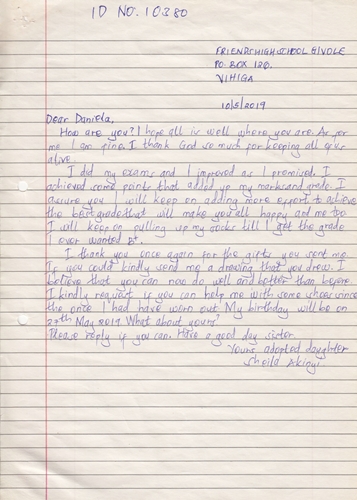 ID NO. 10380
FRIENDS HIGH SCHOOL GIVOLE
P.O. BOX 120.
VIHIGA
10/5/2019
Dear Daniela,
How are you? I hope all is well where you are. As for
me I am fine. I thank God so much for keeping all of us
alive.
I did my exams and I improved as I promised. I
achieved some points that added up my marks and grade. I
assure you I will keep on adding more effort to achieve
the best grade that will make you all happy and me too
I will keep on pulling up my socks till I get the grade
I ever wanted
I thank you once again for the gifts you sent me
If you could kindly send me a drawing that you drew. I
believe that you can now do well and better than before.
I kindly request if you can help me with some shoes since
the once I had have worn out My birthday will be on
27th May 2019 What about yours?
Please reply if you can. Have a good day sister
Yours adopted daughter
Sheila Akinyi